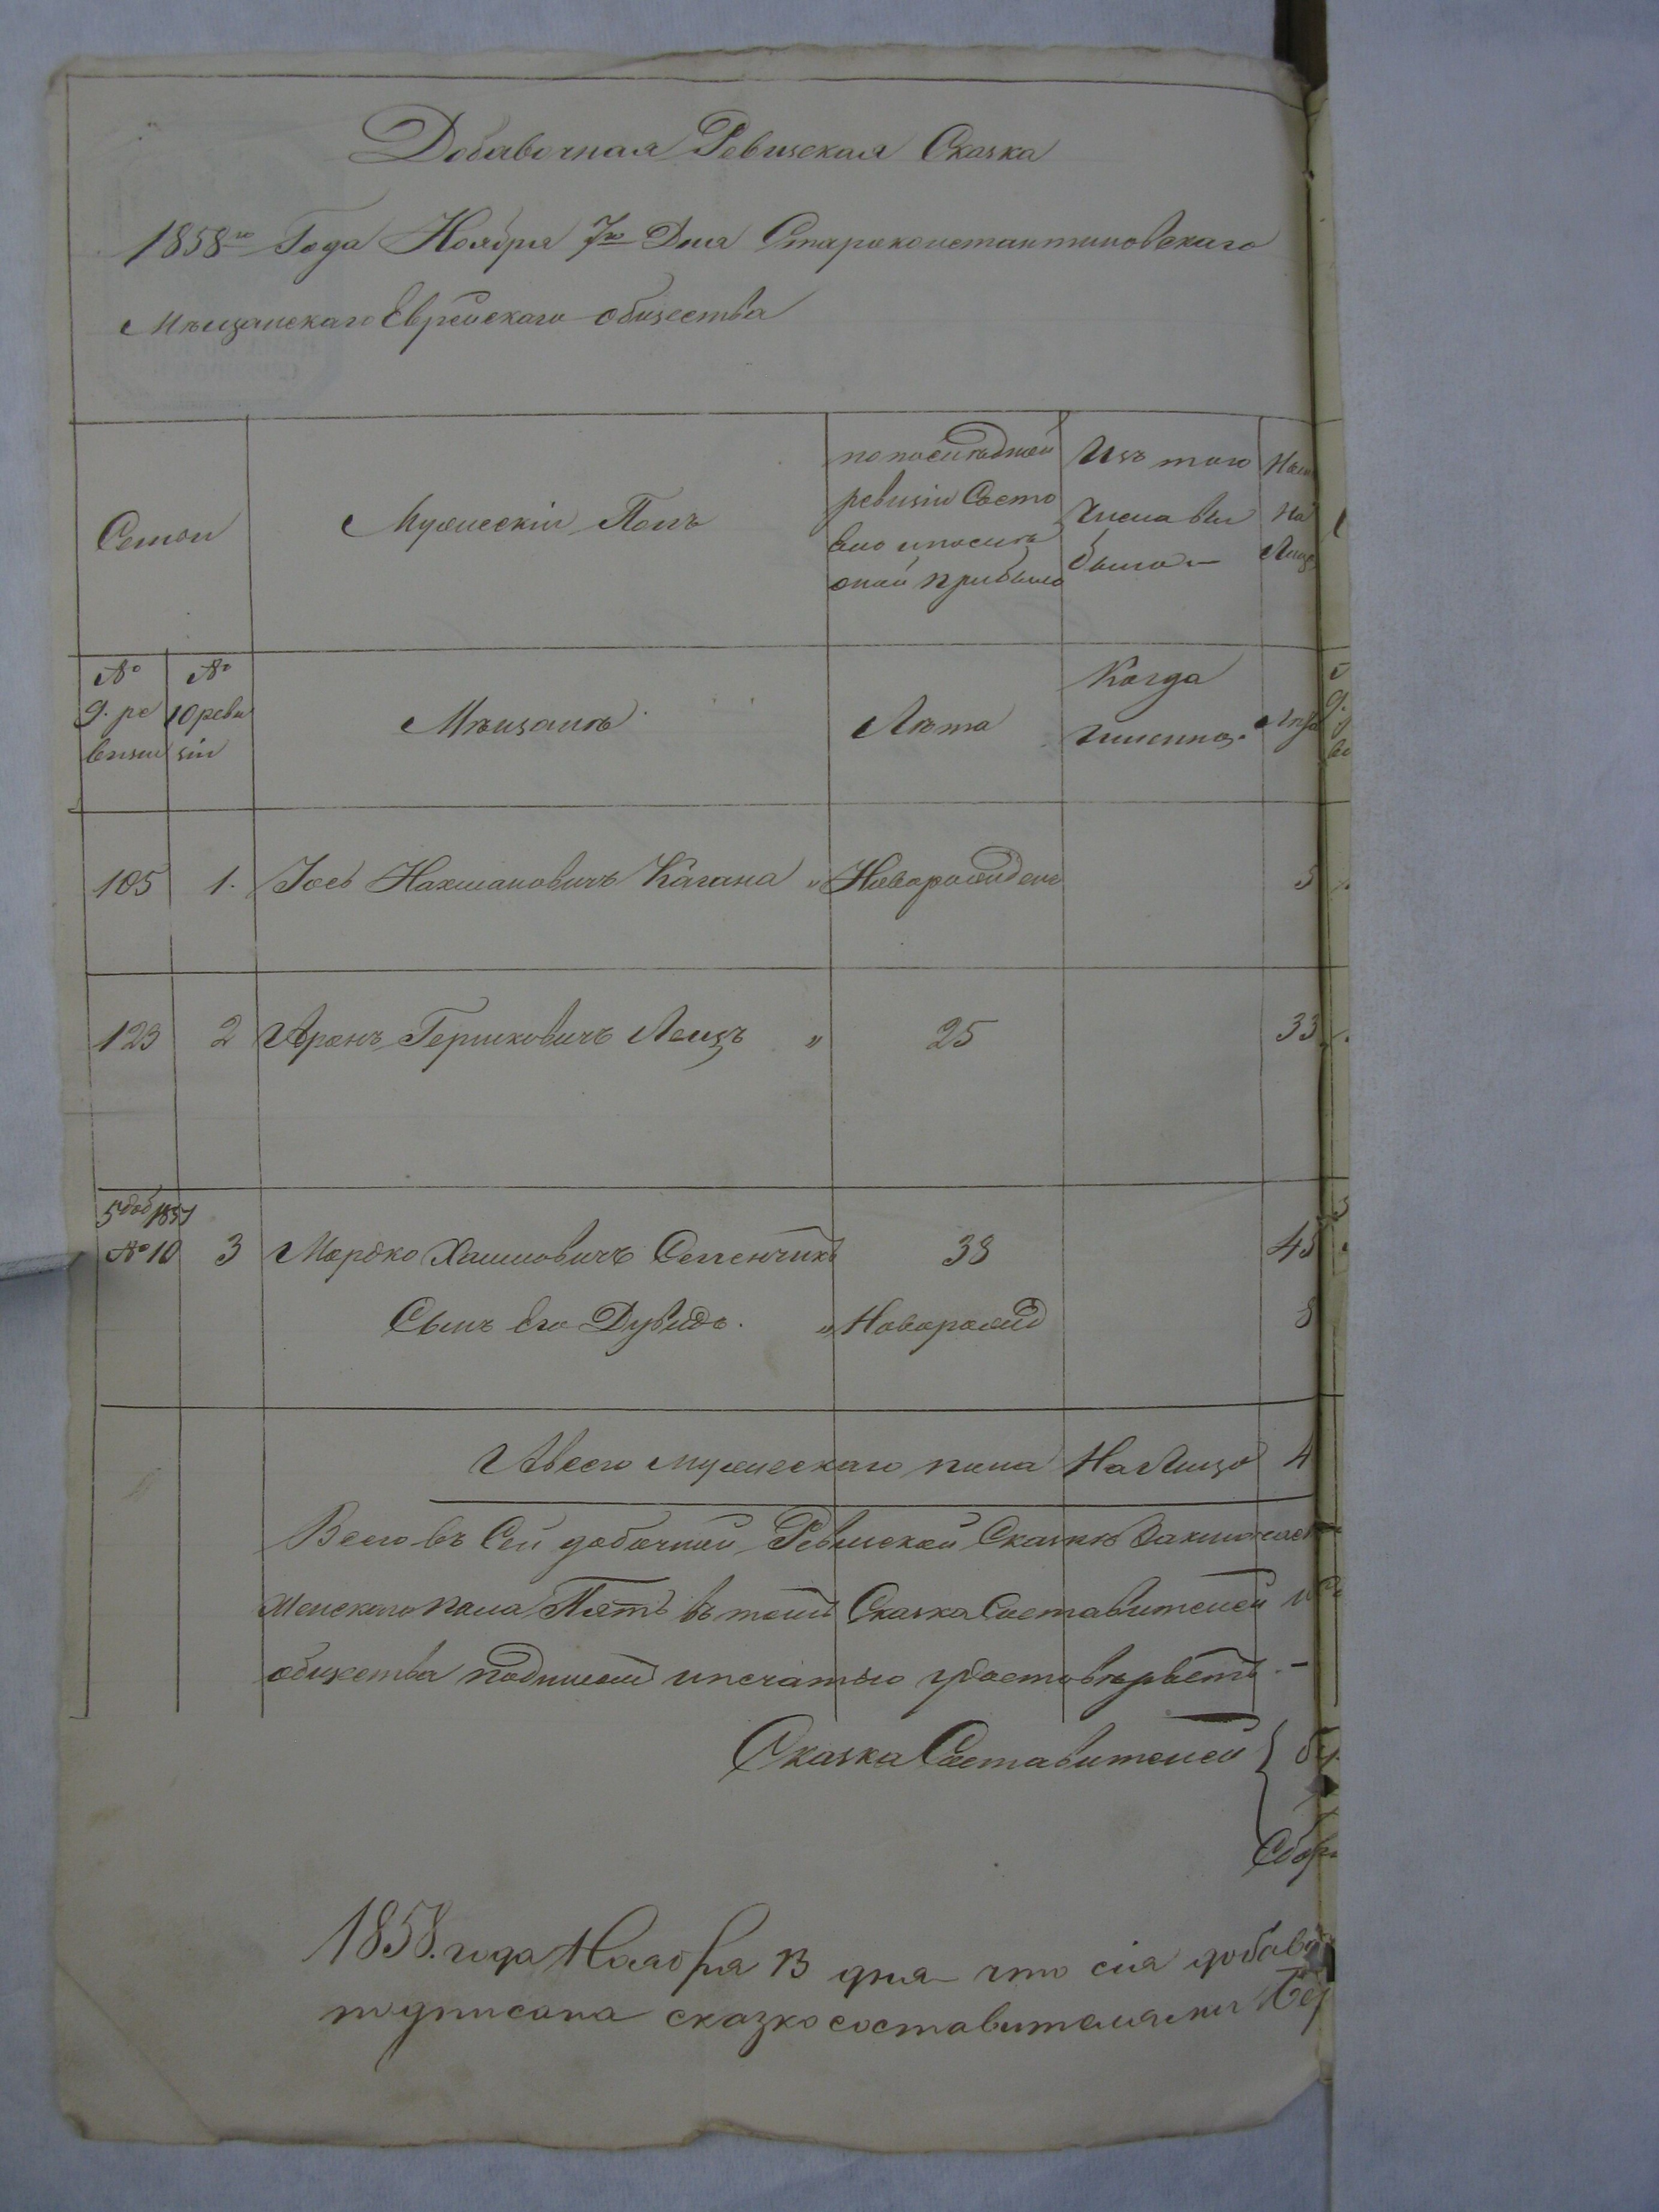 Добавочная Ревизская Сказка
1858го Года Ноября 7го Дня Староконстантиновскаго
Мѣщанскаго Еврейскаго общества
Семьи
Мужескій Полъ
по последней
ревизіи Состо
яло и после
оной прибыло
Изъ того
Числа вы
было
На
Лицо
№
9. ре
визии
№
10 реви
зіи
Мѣщанъ
Лѣта
Когда
Именно
105 1. Іось Нахмановичъ Кагана " Новорожден 5
123 2 Аронъ Гершковичъ Лещъ " 25 33
5 доб 1851
№ 10 3 Мордко Хаимовичъ Селенчикъ 38 45
Сынъ его Дувидъ. " Новорожд 8
И всего мужескаго пола На Лицо 4
Всего въ Сей добочной Ревиской Сказкѣ Заключает
Женскаго пола Пять въ томъ Сказка Составителей
общества подписомъ и печатью удостовѣряетъ. —
Сказка Составителей
Сбор
1858. года Ноября 13 дня что сія добаво
подписана сказкосоставителями